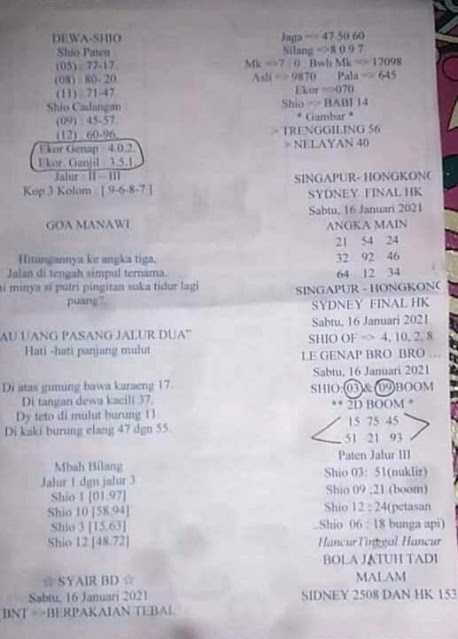 DEWA-SHIO
Shio Paten
(05) : 77-17.
(08) : 80- 20.
(11) : 71-47.
Shio Cadangan :
(09) : 45-57.
(12) : 60-96.
Ekor Genap : 4.0.2.
Ekor. Ganjil : 3.5.1.
Jalur : II – III
Kop 3 Kolom : [ 9-6-8-7 ]
GOA MANAWI
Hitungannya ke angka tiga,
Jalan di tengah simpul ternama.
minya si putri pingitan suka tidur lagi
puang?
UANG PASANG JALUR DUA"
Hati -hati panjang mulut
Di atas gunung bawa karaeng 17.
Di tangan dewa kacili 37.
Dy teto di mulut burung 11.
Di kaki burung elang 47 dgn 55.
Mbah Bilang
Jalur 1 dgn jalur 3
Shio 1 [01.97]
Shio 10 [58.94]
Shio 3 [15.63]
Shio 12 [48.72]
☆ SYAIR BD ☆
Sabtu, 16 Januari 2021
BNT =>BERPAKAIAN TEBAL
Jaga => 47 50 60
Silang =>8 0 9 7
Mk =>7 / 0 Bwb Mk => 17098
Asli => 9870 Pala => 645
Ekor =>070
Shio => BABI 14
* Gambar *
> TRENGGILING 56
> NELAYAN 40
SINGAPUR- HONGKONG
SYDNEY FINAL HK
Sabtu, 16 Januari 2021
ANGKA MAIN
21 54 24
32 92 46
64 12 34
SINGAPUR - HONGKONG
SYDNEY FINAL HK
Sabtu, 16 Januari 2021
SHIO OF => 4, 10, 2, 8
LE GENAP BRO BRO ...
Sabtu, 16 Januari 2021
SHIO: 03 & 09 BOOM
** 2D BOOM *
15 75 45
51 21 93
Paten Jalur III
Shio 03: 51(nuklir)
Shio 09 ;21 (boom)
Shio 12 : 24(petasan
..Shio 06 : 18 bunga api)
HancurTinggal Hancur
BOLA JATUH TADI
MALAM
SIDNEY 2508 DAN HK 153